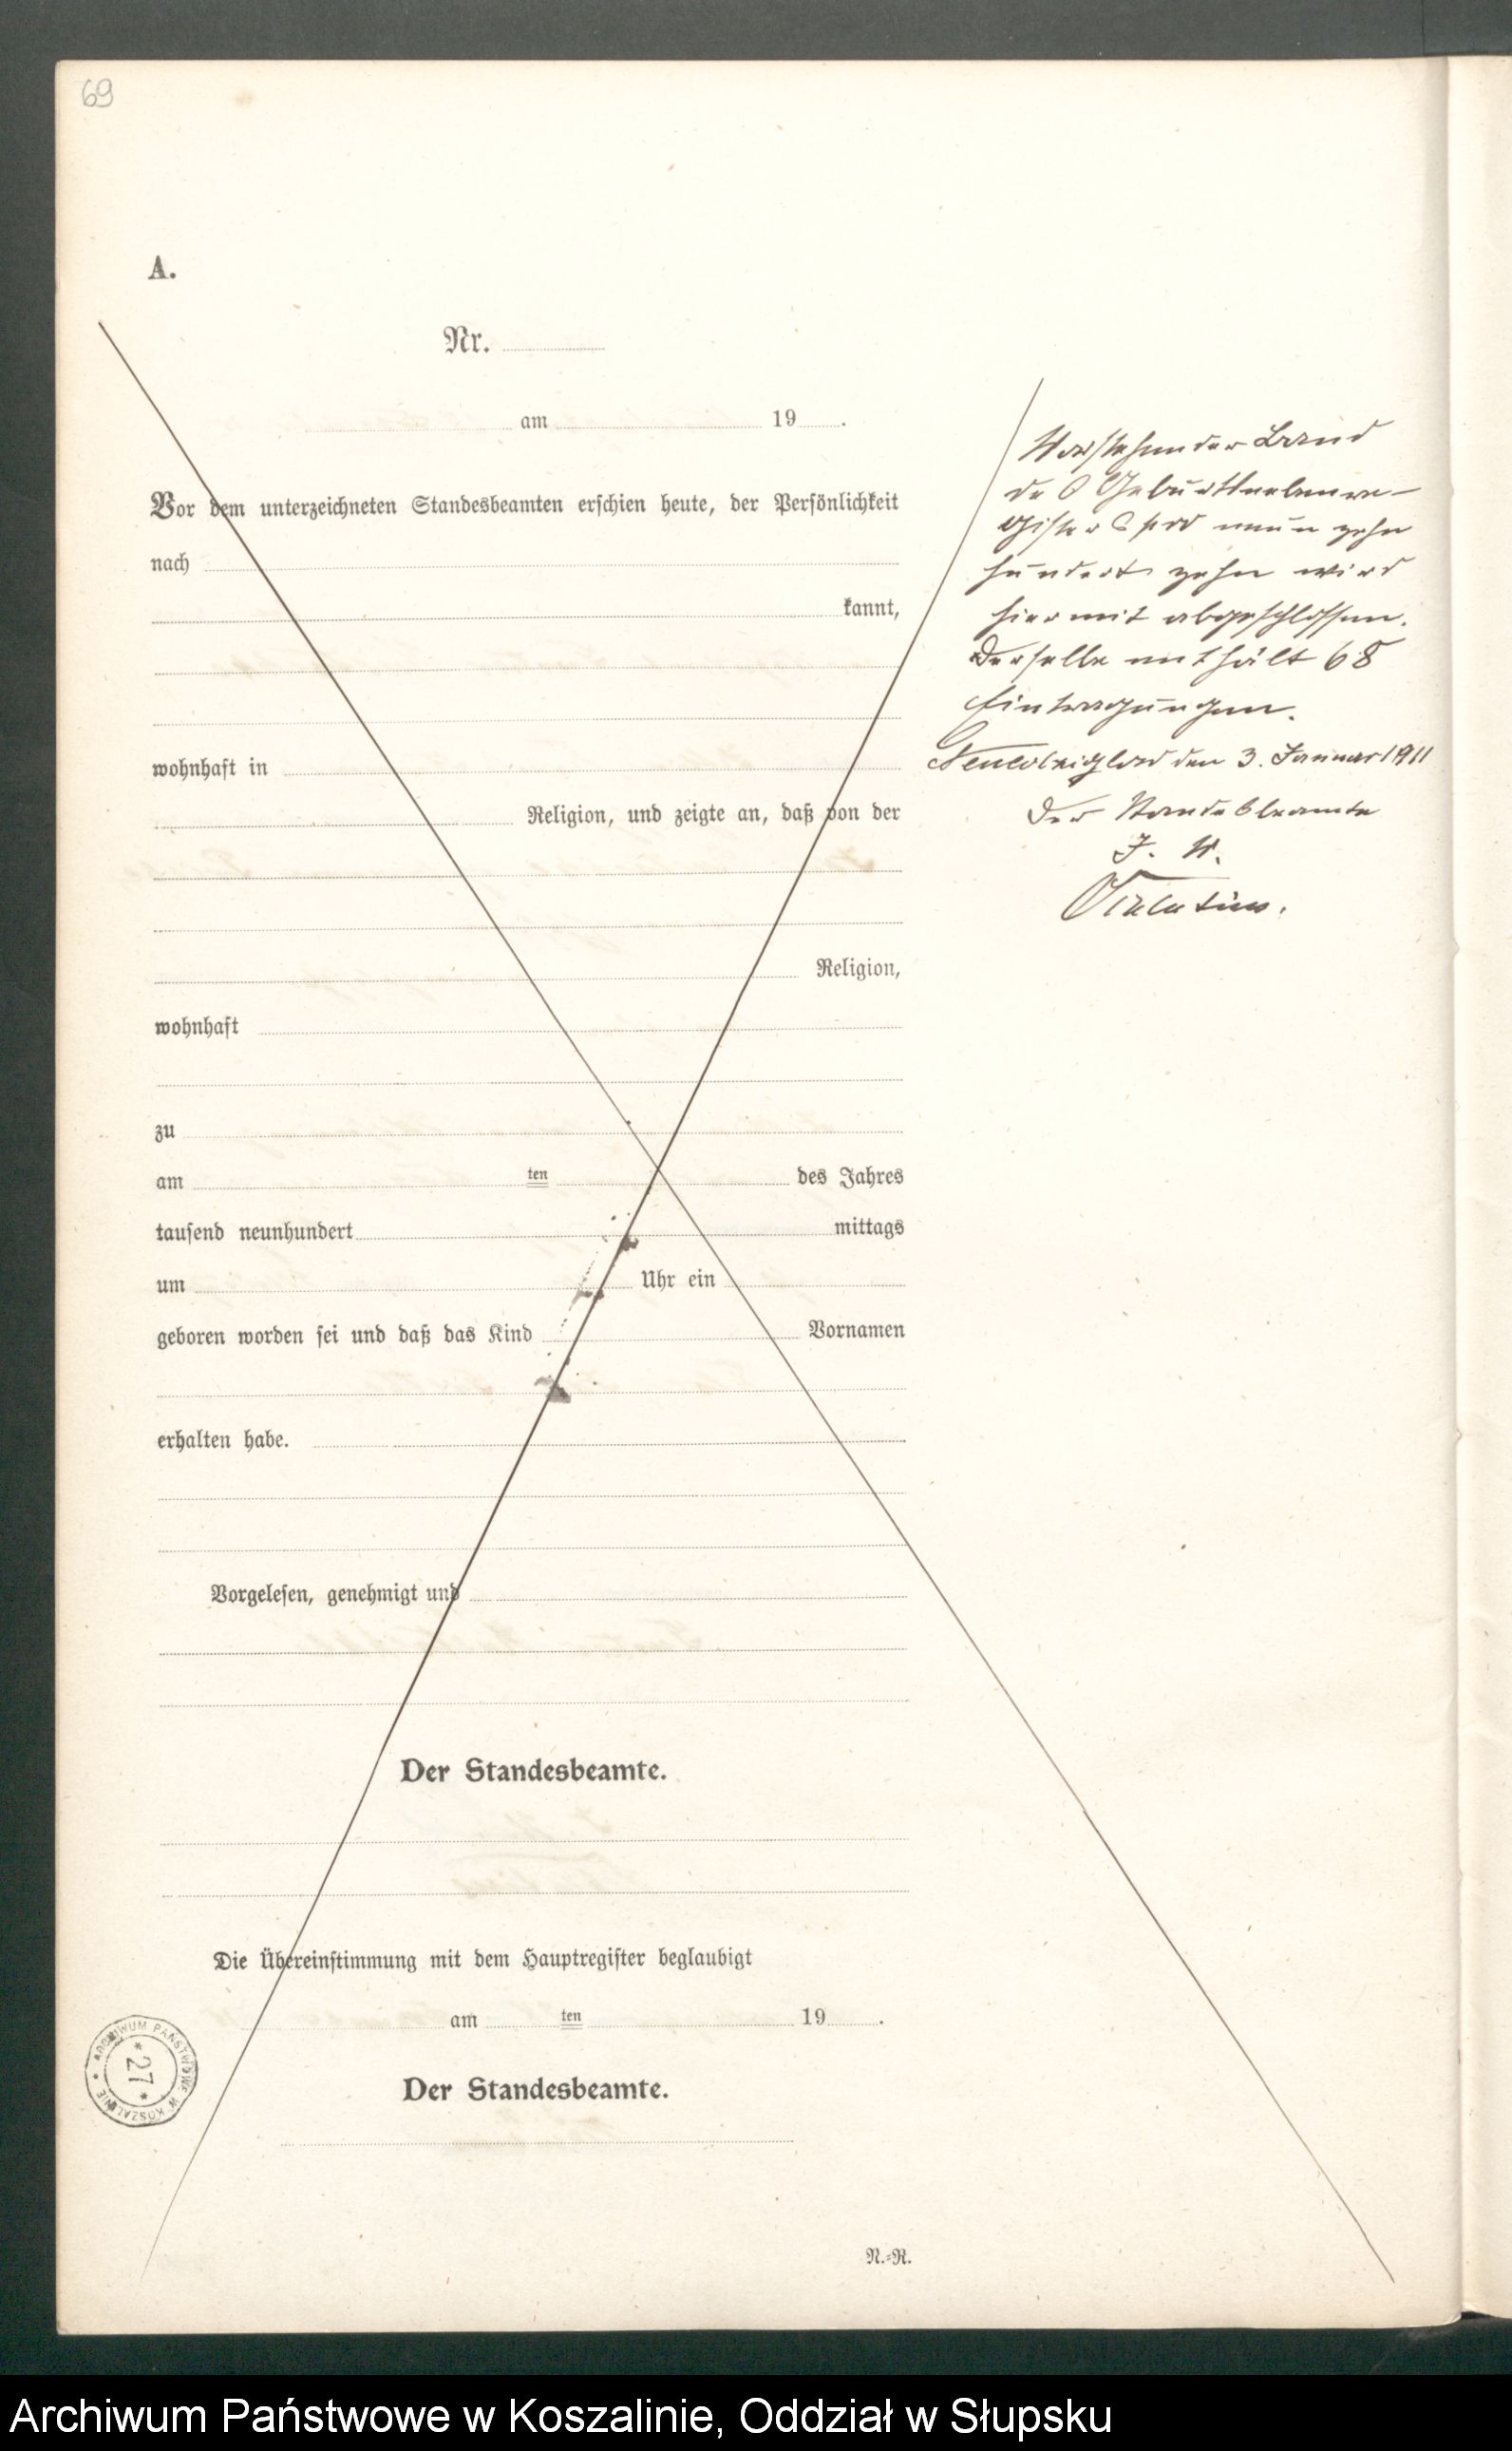 69
A.
Nr.
am 19 .
Vor dem unterzeichneten Standesbeamten erschien heute, der Persönlichkeit
nach
kannt,
wohnhaft in
Religion, und zeigte an, daß von der
Religion,
wohnhaft
zu
am ten des Jahres
tausend neunhundert mittags
um Uhr ein
geboren worden sei und daß das Kind Vornamen
erhalten habe.
Vorgelesen, genehmigt und
Der Standesbeamte.
Die Übereinstimmung mit dem Hauptregister beglaubigt
am ten 19 .
Der Standesbeamte.
N.-R.
Vorstehender Band
des Geburtsnebenre-
gisters pro neunzehn
hundert zehn wird
hiermit abgeschlossen.
Derselbe enthält 68
Eintragungen.
den 3. Januar 1911
Der Standesbeamte
J. V.
ARCHIWUM PAŃSTWOWE W KOSZALINIE
* 27 *
Archiwum Państwowe w Koszalinie, Oddział w Słupsku